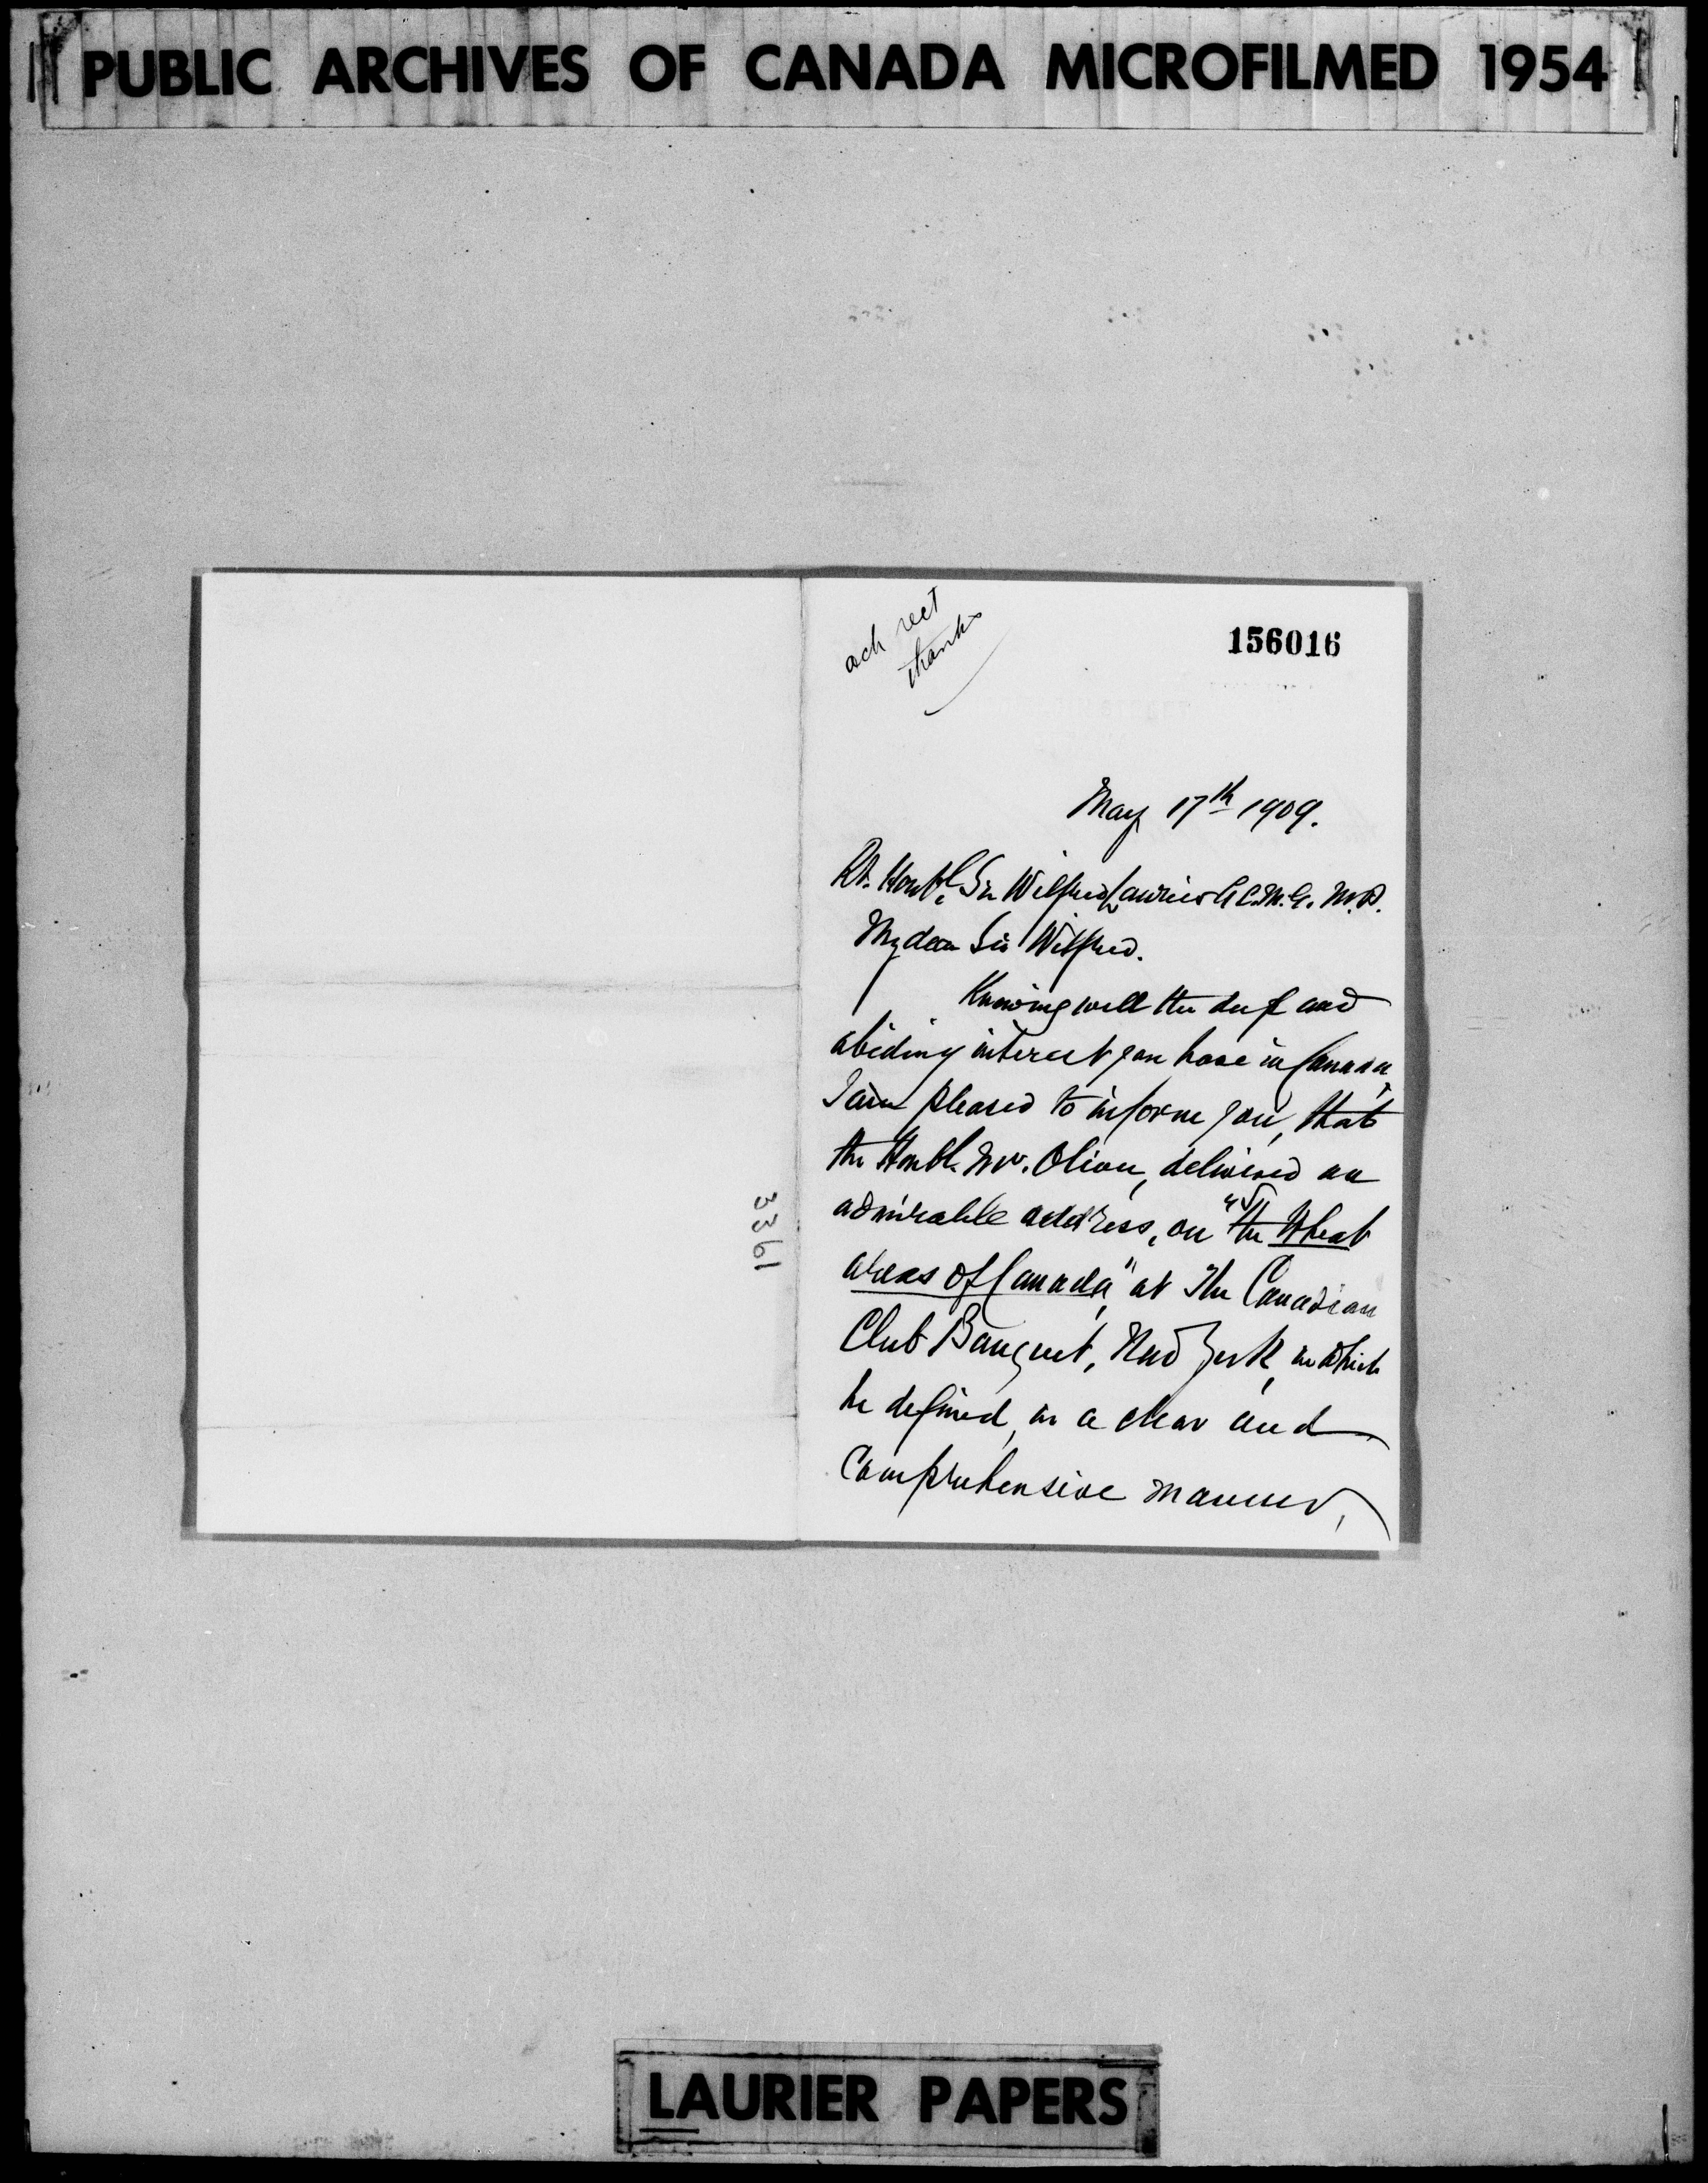 PUBLIC ARCHIVES OF CANADA MICROFILMED 1954
ack rect
thanks
156016
May 17th 1909.
Rt. Honble Sir Wilfred Laurier G.C.M.G. M.P.
My dear Sir Wilfred.
Knowing well the deep and
abiding interest you have in Canada,
I am pleased to inform you, that
the Honbl. Mr. Oliver, delivered an
admirable address, on "the Wheat
areas of Canada", at The Canadian
Club Banquet, New York, in which
he defined, in a clear and
Comprehensive manner,
3361
LAURIER PAPERS